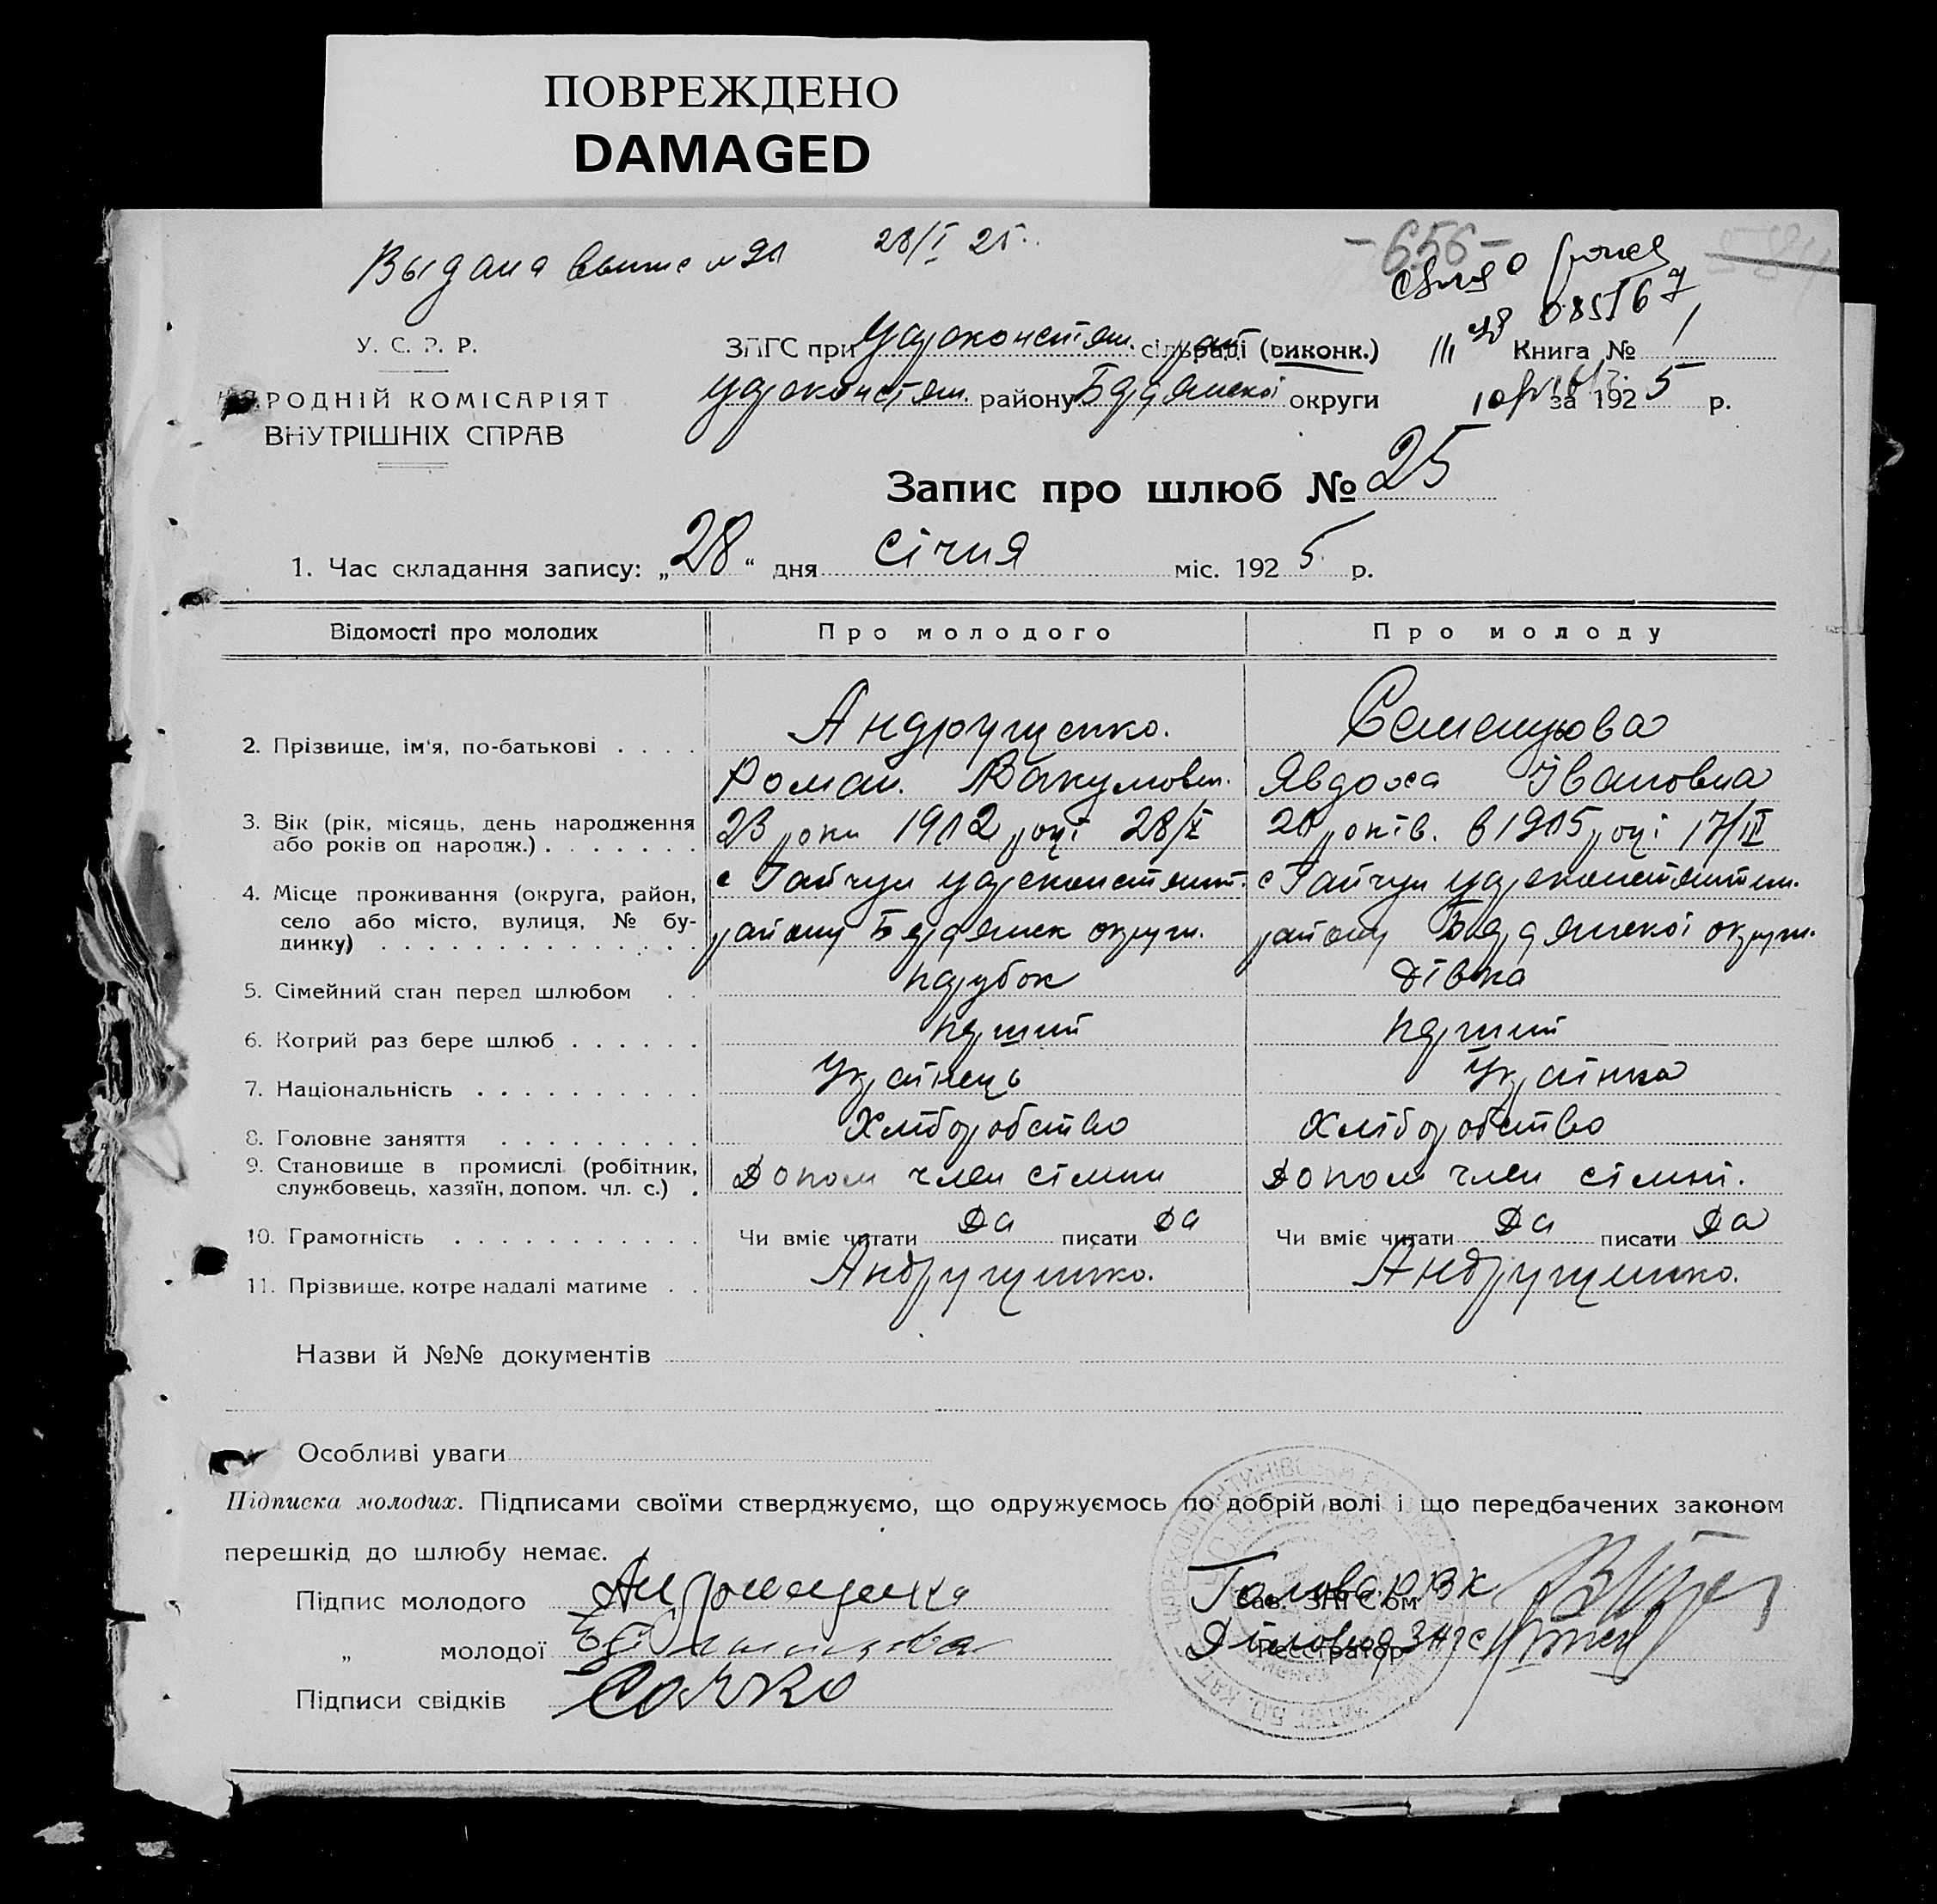 ПОВРЕЖДЕНО
DAMAGED
Выдана 28/I 25
-656-
085167
У. С. Р. Р.
ЗАГС при Царэконстян. сільраді (виконк.) Книга № 1
НАРОДНІЙ КОМІСАРІЯТ
Царэконстян. району Бердянської округи за 1925 р.
ВНУТРІШНІХ СПРАВ
Запис про шлюб № 25
1. Час складання запису: „28“ дня січня міс. 1925 р.
Відомості про молодих Про молодого Про молоду
2. Прізвище, ім'я, по-батькові . . . . Андрущенко. Семенцова
Роман. Вакумович. Явдоха Івановна
3. Вік (рік, місяць, день народження 23 роки 1902 році 28/X 20 років. в 1905 році 17/II
або років од народж.) . . . . . . .
4. Місце проживання (округа, район, с Гайчул царэконстянт. с Гайчул царэконстянтин.
село або місто, вулиця, № бу- району Бердянск округи. району Бердянської округи.
динку) . . . . . . . . . . . . . .
5. Сімейний стан перед шлюбом . . парубок дівка
6. Котрий раз бере шлюб . . . . . . перший перший
7. Національність . . . . . . . . . . Українець Українка
8. Головне заняття . . . . . . . . . Хліборобство Хліборобство
9. Становище в промислі (робітник, Допом член сімни Допом член сімні.
службовець, хазяїн, допом. чл. с.) .
10. Грамотність . . . . . . . . . . . Чи вміє читати Да писати Да Чи вміє читати Да писати Да
11. Прізвище, котре надалі матиме . . Андрущенко. Андрущенко.
Назви й №№ документів
Особливі уваги
Підписка молодих. Підписами своїми стверджуємо, що одружуємось по добрій волі і що передбачених законом
перешкід до шлюбу немає.
Підпис молодого Андрющенко Голова РВК
Зав. ЗАГС'ом
„ молодої Діловод ЗАГС
Реєстратор
Підписи свідків Сачко